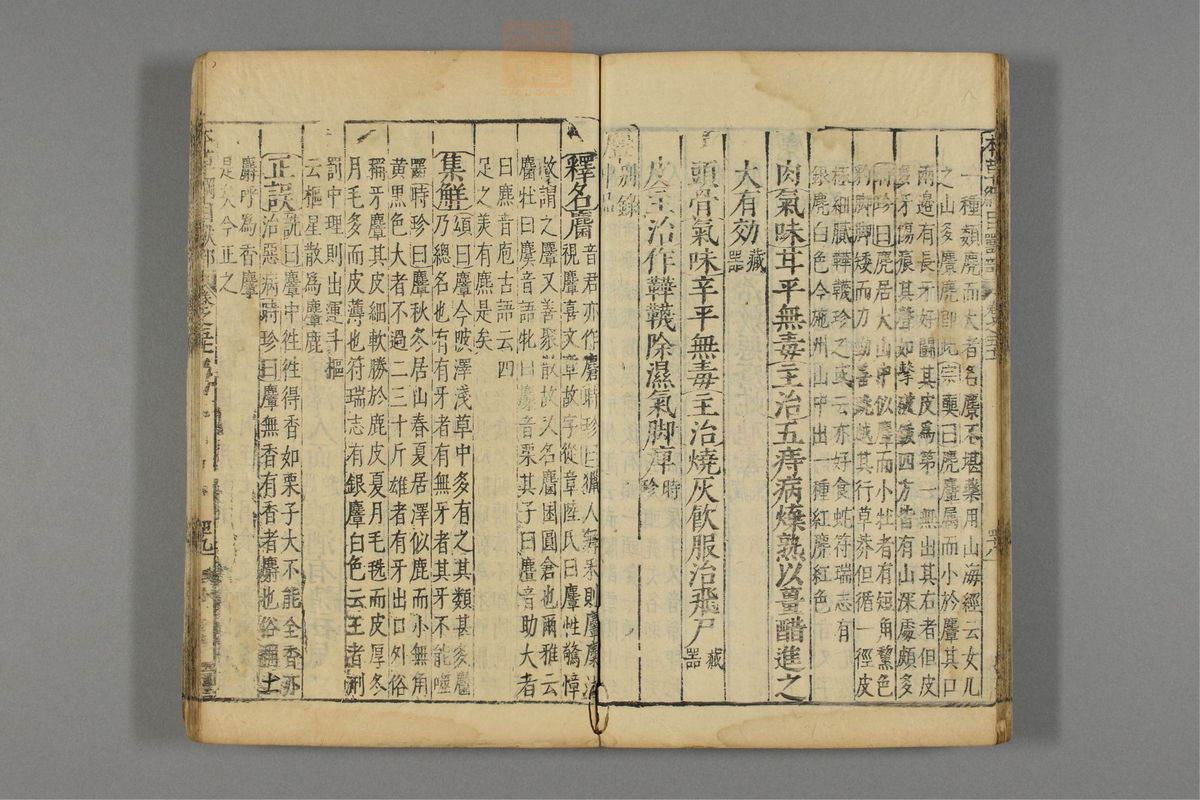 一種類麂而大者名麖不堪藥用山海經云女几
之山多麖麂即此宗奭曰麂麞屬而小於麞其口
兩邊有長牙好鬪其皮為第一無出其右者但皮
多牙傷痕其聲如擊破鈸四方皆有山深處頗多
時珍曰麂居大山中似麞而小牡者有短角黧色
豹脚脚矮而力勁善跳越其行草莽但循一徑皮
極細膩鞾韈珍之或云亦好食蛇符瑞志有
銀麂白色今施州山中出一種紅麂紅色
肉氣味甘平無毒主治五痔病煠熟以薑醋進之
大有効藏器
頭骨氣味辛平無毒主治燒灰飲服治飛尸藏器
皮主治作鞾韈除濕氣脚痺時珍
別錄
中品
釋名麕音君亦作麏時珍曰獵人舞采則麞麋注
視麞喜文章故字從章陸氏曰麞性驚慞
故謂之麞又善聚散故又名麕囷圓倉也爾雅云
麕牡曰麌音語牝曰麜音栗其子曰麆音助大者
曰麃音庖古語云四
足之美有麃是矣
集觧頌曰麞今陂澤淺草中多有之其類甚多麞
乃總名也有有牙者有無牙者其牙不能噬
囓時珍曰麞秋冬居山春夏居澤似鹿而小無角
黃黑色大者不過二三十斤雄者有牙出口外俗
稱牙麞其皮細軟勝於鹿皮夏月毛毨而皮厚冬
月毛多而皮薄也符瑞志有銀麞白色云王者刑
罰中理則出運斗樞
云樞星散為麞鹿
正誤詵曰麞中徃徃得香如栗子大不能全香亦
治惡病時珍曰麞無香有香者麝也俗稱土
麝呼為香麞
是矣今正之